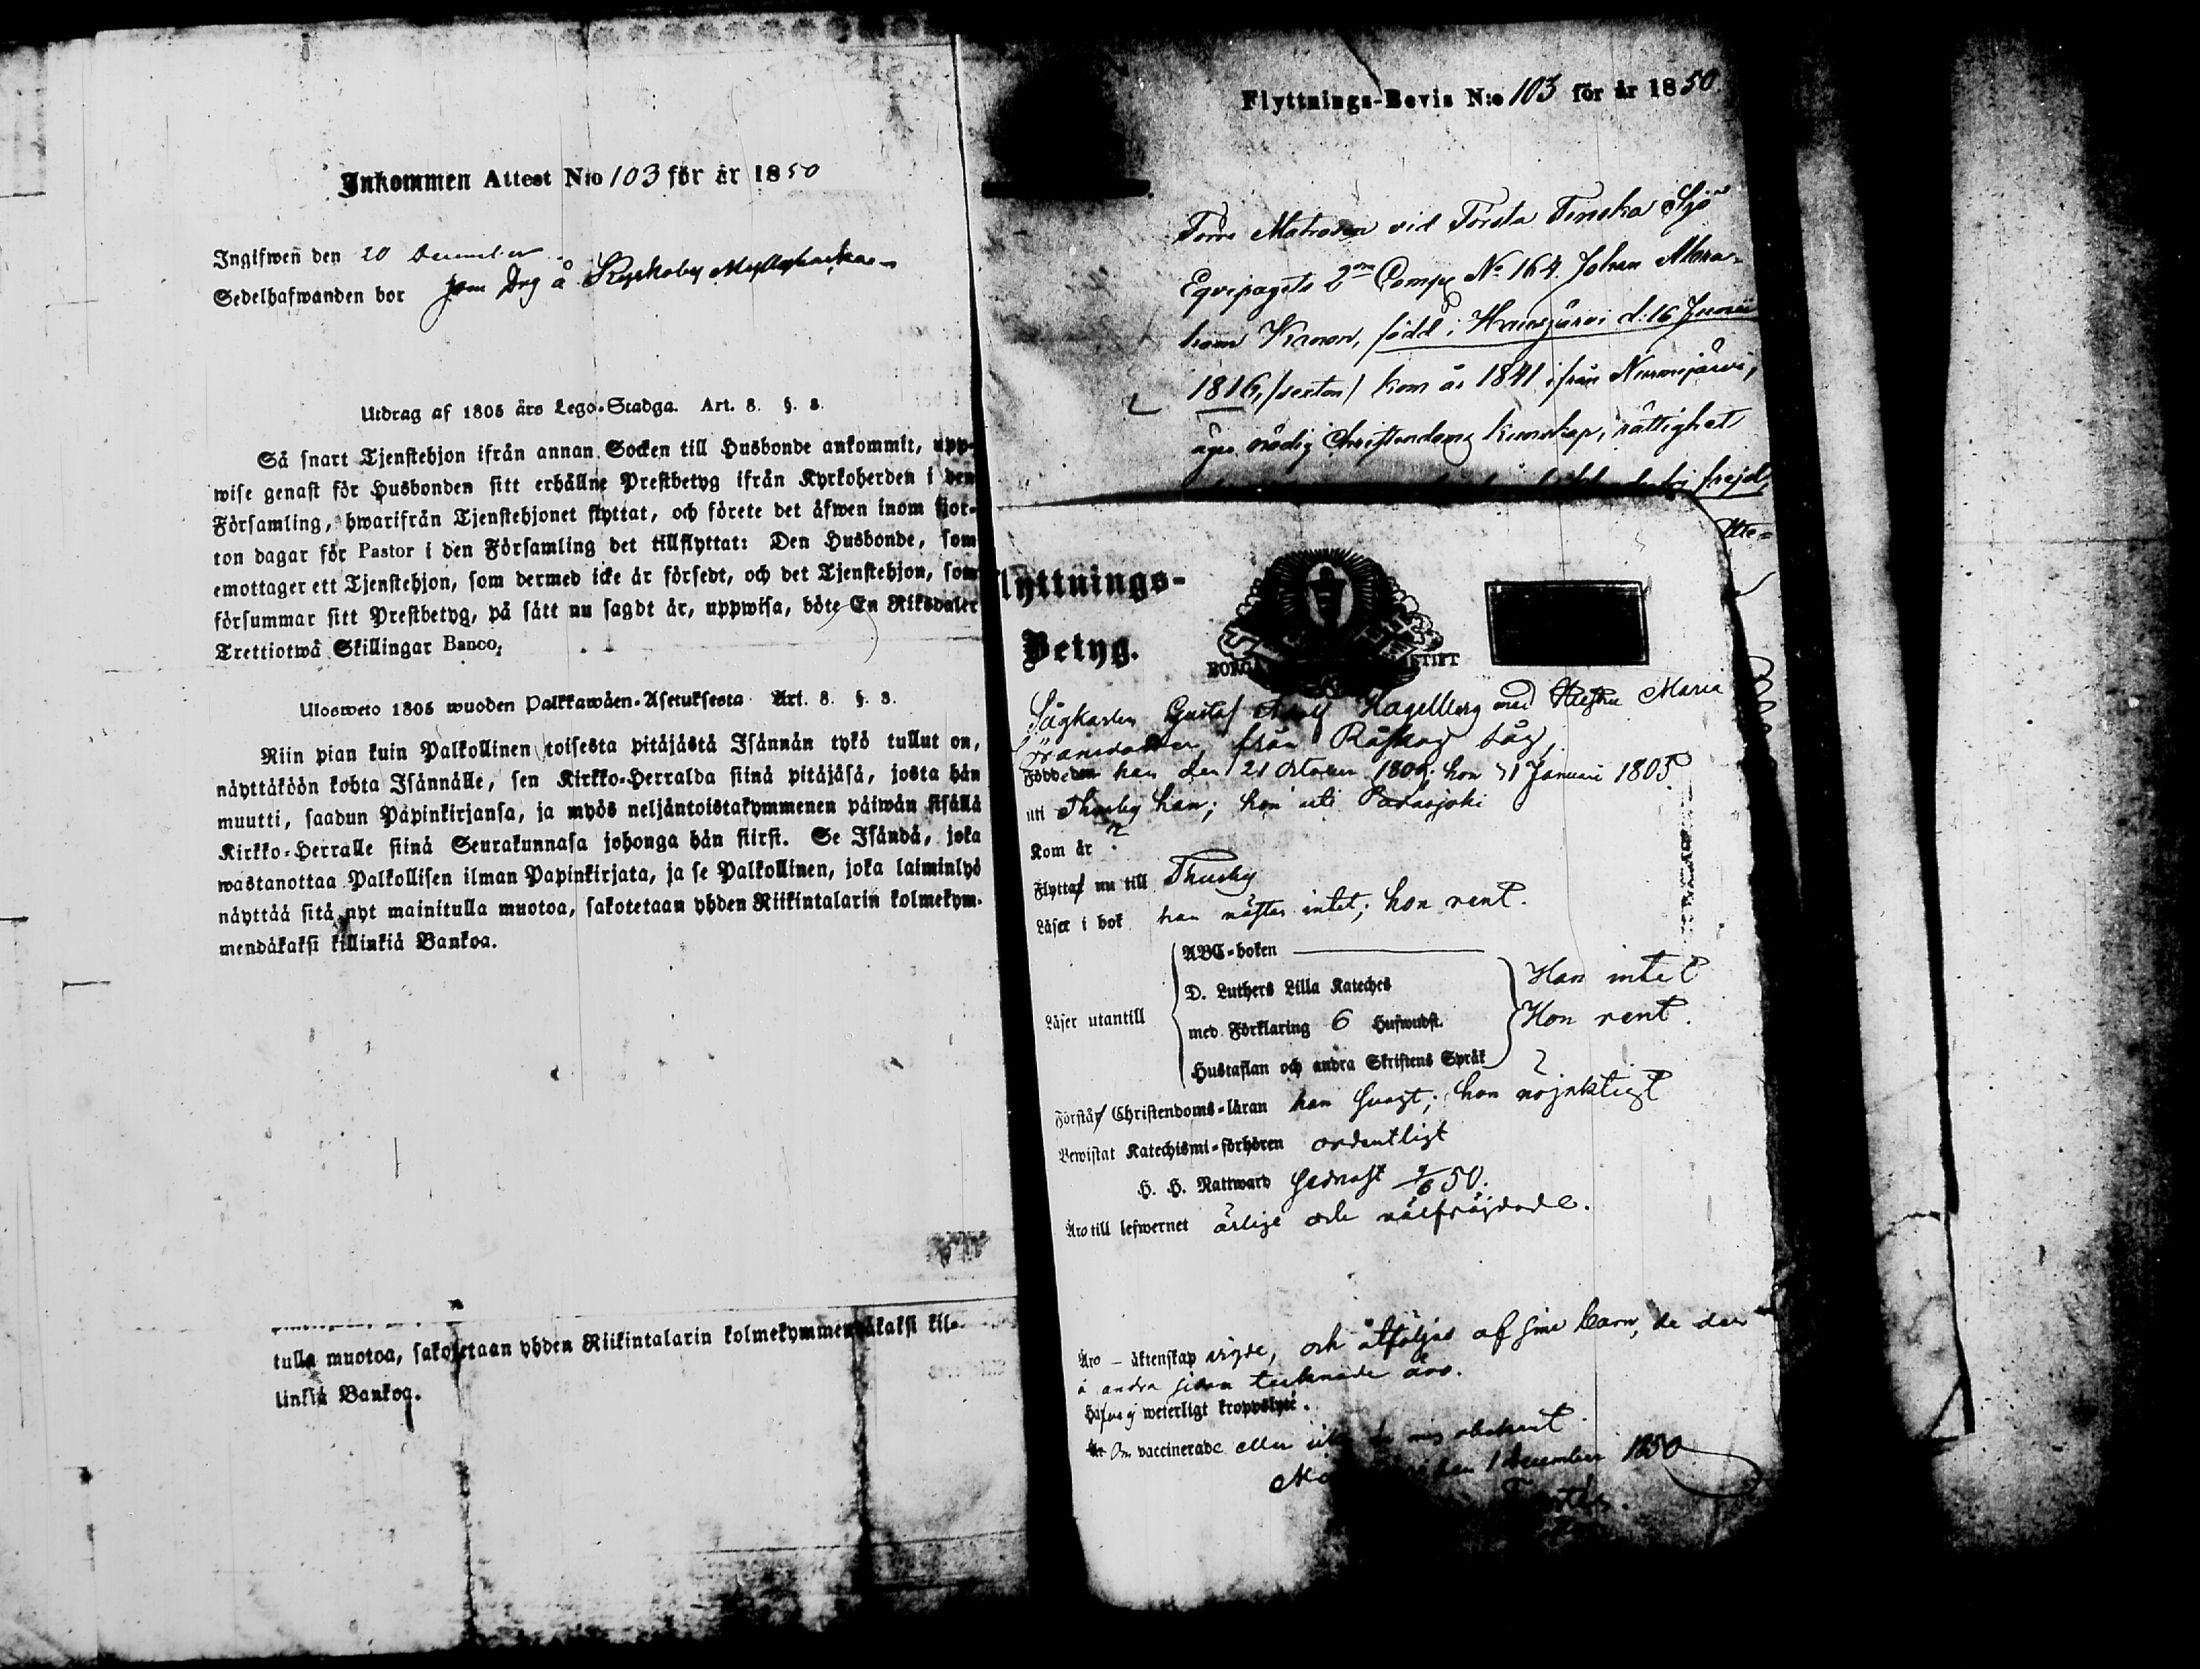 Inkommen Attest N:o 103 för år 1850
Ingifwen den 20 December
Sedelhafwanden bor som Drg å Kyrkoby
Utdrag af 1805 års Lego-Stadga. Art. 8. §. 8.
Så snart Tjenstehjon ifrån annan Socken till Husbonde ankommit, upp-
wise genast för Husbonden sitt erhållne Prestbetyg ifrån Kyrkoherden i den
Församling, hwarifrån Tjenstehjonet flyttat, och förete det äfwen inom fjor-
ton dagar för Pastor i den Församling det tillflyttat: Den Husbonde, som
emottager ett Tjenstehjon, som dermed icke är försedt, och det Tjenstehjon, som
försummar sitt Prestbetyg, på sätt nu sagdt är, uppwisa, böte En Riksdaler
Trettiotwå Skillingar Banco.
Ulosweto 1805 wuoden Palkkawäen-Asetuksesta Art. 8. §. 8.
Niin pian kuin Palkollinen toisesta pitäjästä Isännän tykö tullut on,
näyttäköön kohta Isännälle, sen Kirkko-Herralda siinä pitäjäsä, josta hän
muutti, saadun Papinkirjansa, ja myös neljäntoistakymmenen päiwän sisällä
Kirkko-Herralle siinä Seurakunnasa johonga hän siirsi. Se Isändä, joka
wastanottaa Palkollisen ilman Papinkirjata, ja se Palkollinen, joka laiminlyö
näyttää sitä nyt mainitulla muotoa, sakotetaan yhden Riikintalarin kolmekym-
mendäkaksi killinkiä Bankoa.
tulla muotoa, sakotetaan yhden Riikintalarin kolmekymmendäkaksi kil-
linkiä Bankoa.
Flyttnings-Bevis N:o 103 för år 1850
Förre Matrosen vid Första Finska Sjö
Eqvipagets 2:ra Comp. No 164 Johan Abra-
ham Kranon, född i Hausjärvi d. 16 Junii
1816, /sexton/ kom år 1841 ifrån Nurmijärvi,
äger nödig Christendoms kunskap, rättighet
frejd,
Flyttnings-
Betyg.
BORGÅ STIFT
Sågkarlen Gustaf Adolf Hagelberg med Hustru Maria
Göransdotter från Råskog såg,
Född den han den 21 October 1809; hon 31 Januari 1805
uti Thusby han; hon uti Padasjoki
Kom år ?
Flyttar nu till Thusby
Läser i bok han nästan intet; hon rent.
ABC-boken
Läser utantill
D. Luthers Lilla Kateches
med Förklaring 6 Hufwudst.
Hustaflan och andra Skriftens Språk
Han intet
Hon rent.
Förstår Christendoms-läran han svagt; hon nöjaktigt
Bewistat Katechismi-förhören ordentligt
H. H. Nattward sednast 9/6 50.
Äro till lefwernet ärlige och välfräjdade.
Äro – äktenskap vigde, och åtföljas af sine barn, de der
å andra sidan tecknade äro.
Hafva ej weterligt kroppslyte.
Om vaccinerade eller icke är mig obekant.
den 1 December 1850